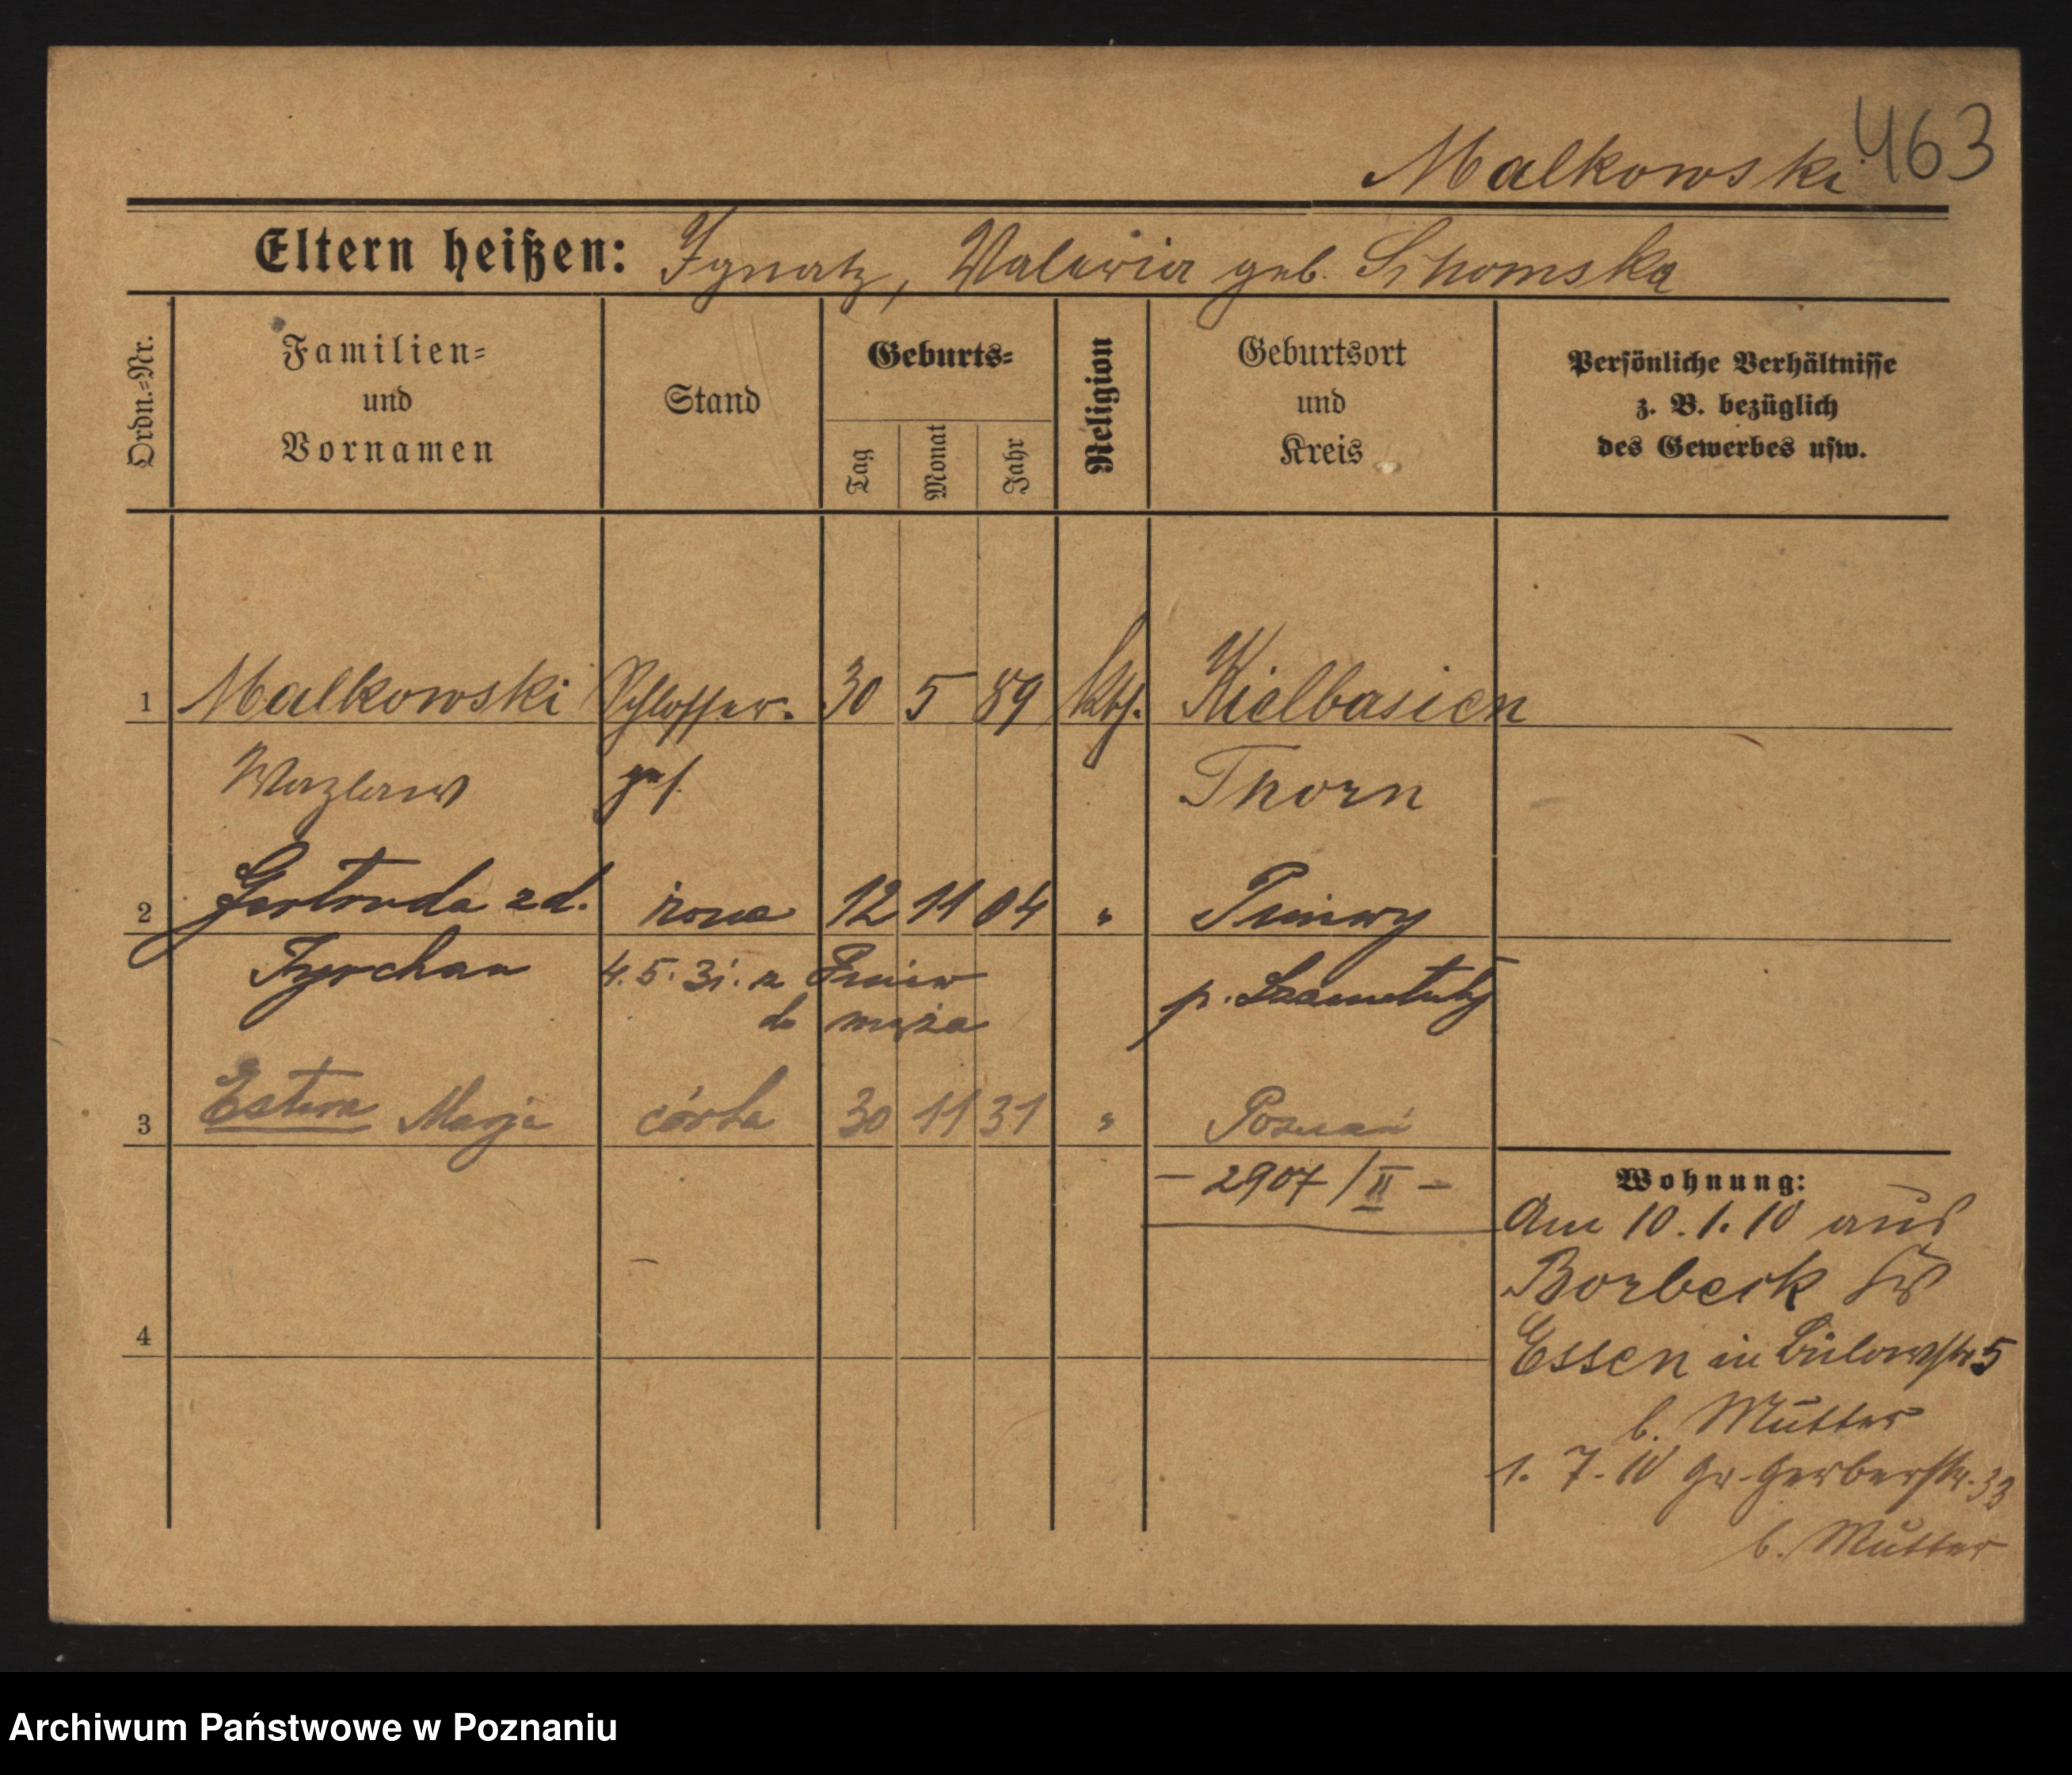 463
Malkowski
Eltern heißen: Ignatz, Waleria geb.
Ordn.-Nr.
Familien-
und
Vornamen
Stand
Geburts-
Tag
Monat
Jahr
Religion
Geburtsort
und
Kreis
Persönliche Verhältnisse
z. B. bezüglich
des Gewerbes usw.
1 Malkowski Schlosser. 30 5 89 kth. Kielbasien
Wazlaw ges. Thorn
2 Gertruda z d. żona 12 11 04 " Pniewy
4.5.31. z Pniew p. Szamotuły
do męża
3 Estera Marja córka 30 11 31 " Poznań
- 2907/II -
4
Wohnung:
Am 10.1.10 aus
Borbeck
Essen in Bülowstr 5
b. Mutter
1.7.10 Gr. Gerberstr. 33
b. Mutter
Archiwum Państwowe w Poznaniu